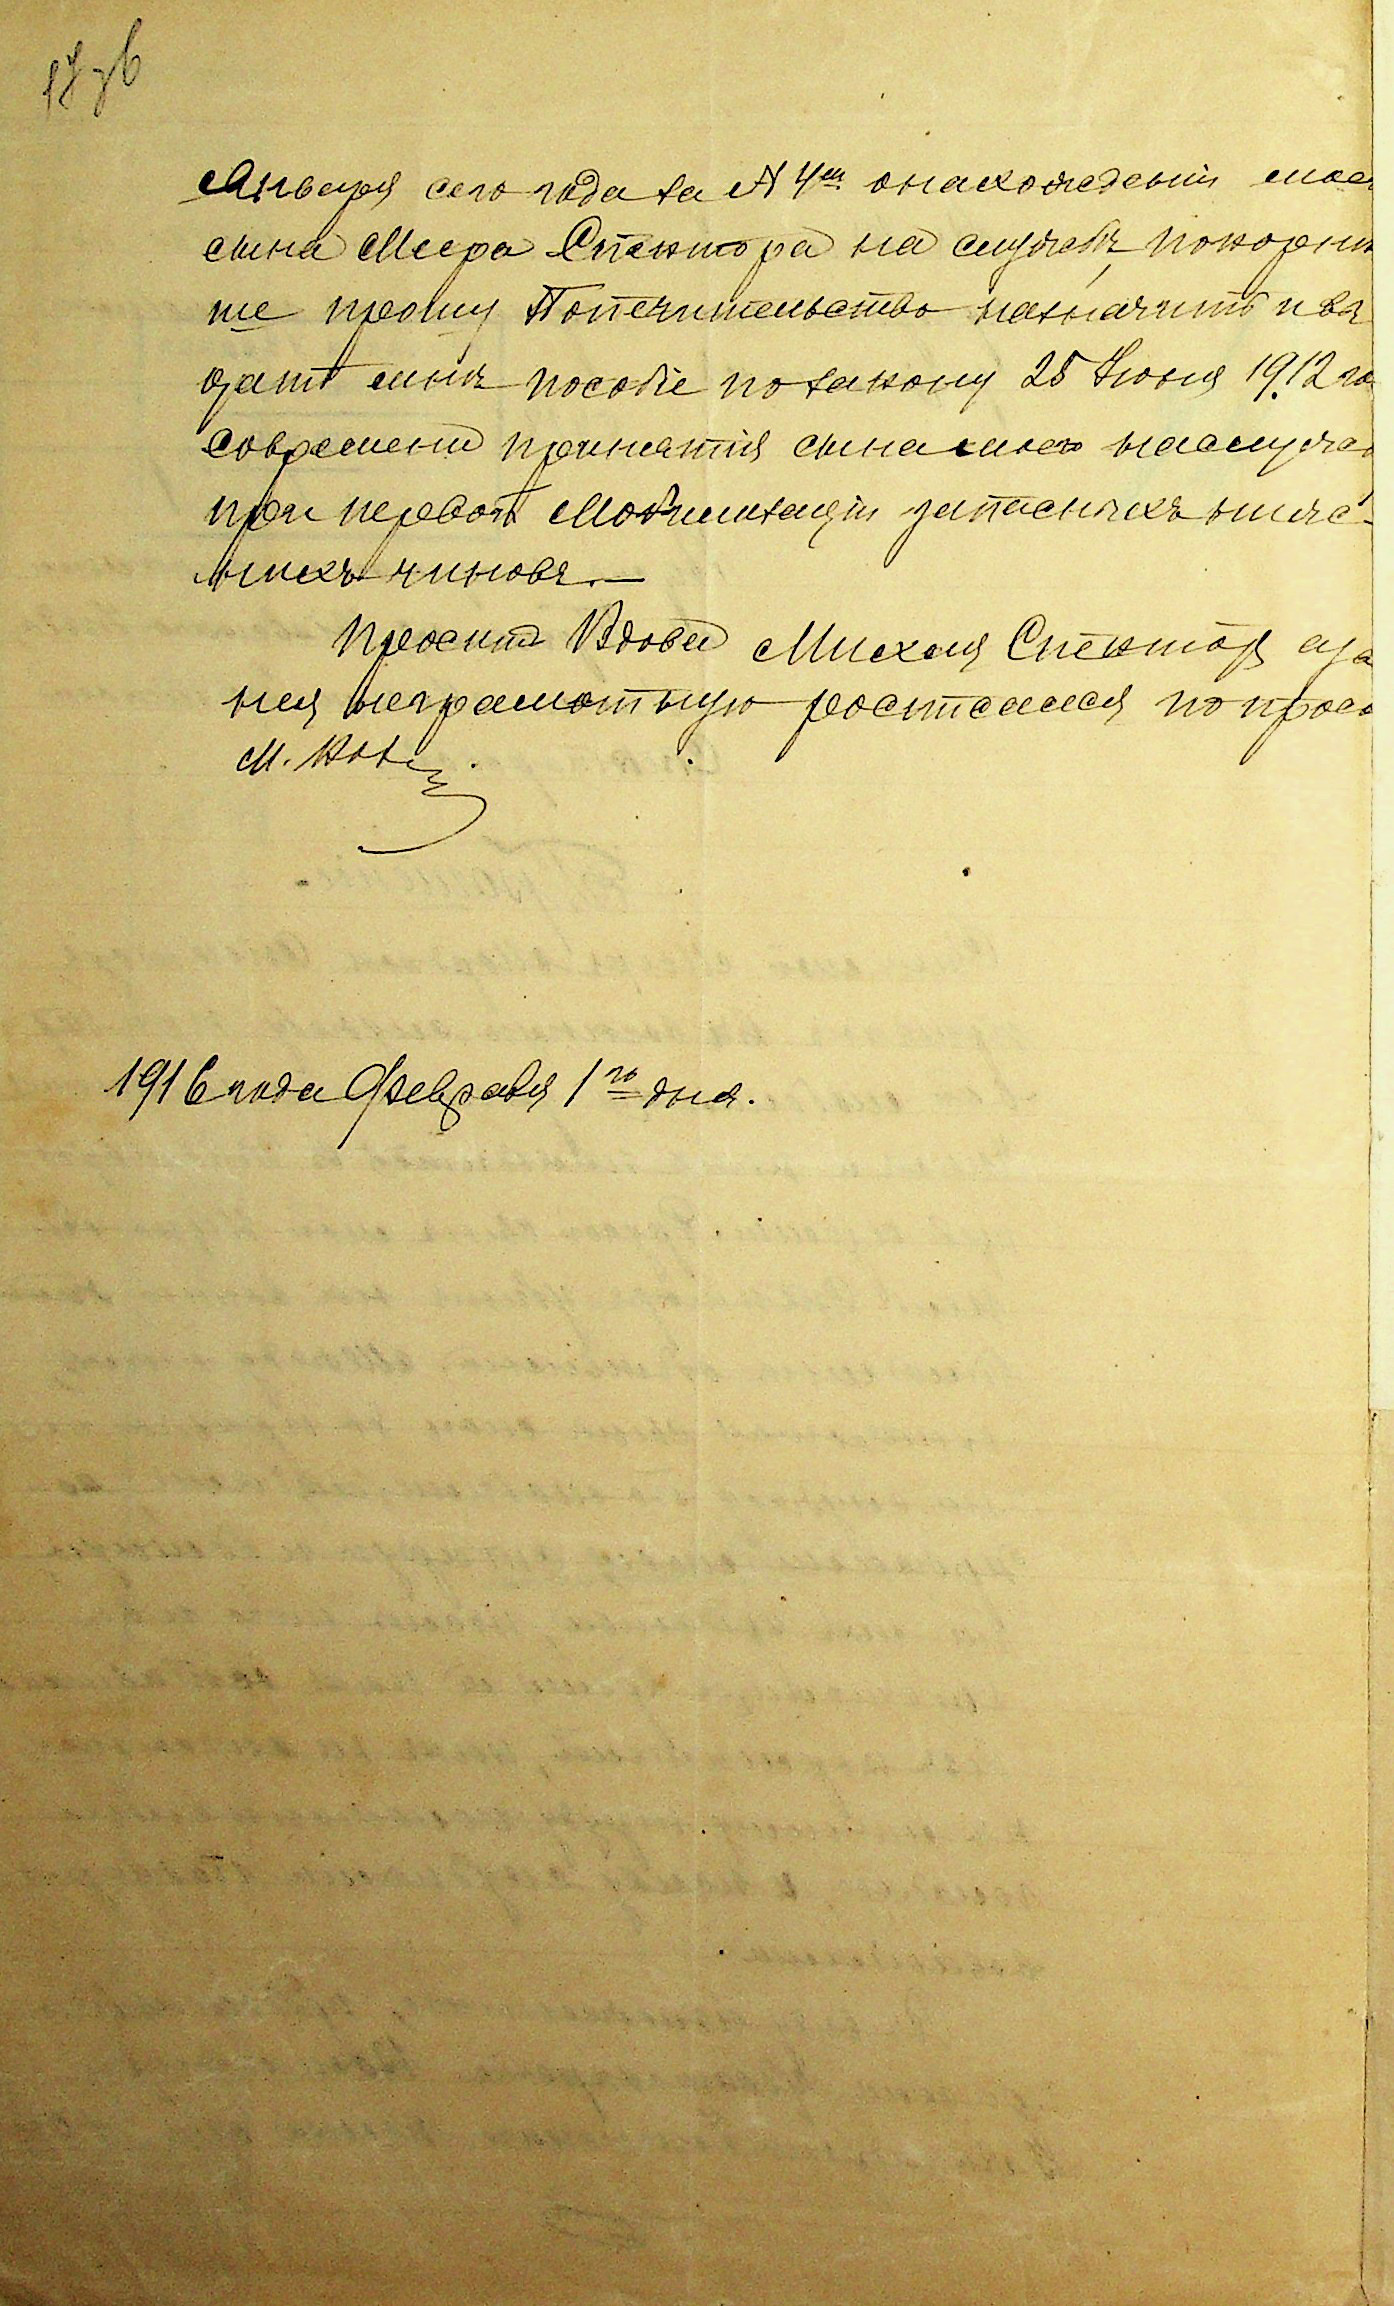 Января сего года за № 4м о нахожденіи мое
сына Меера Спектора на службѣ покорнѣ
ше прошу Попечительство назначить и вы
дать мнѣ пособіе по закону 25 Іюня 1912 го
со времени принятія сына моего на служб
при первой Мобилизаціи запасныхъ ниж-
нихъ чиновъ.—
Проситъ Вдова Спекторъ а за
нея неграмотную росписался по прось
М.
1916 года Февраля 1го дня.